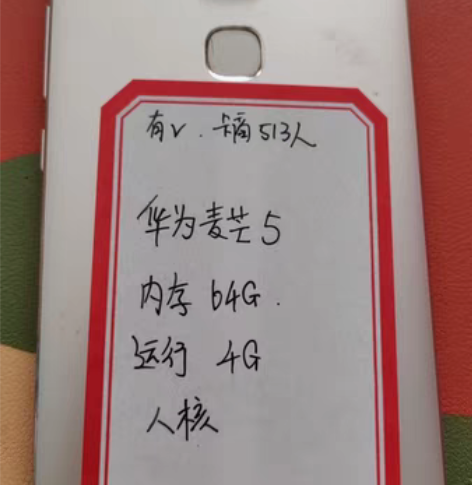 有v.卡滴513人
华为麦芒5
内存 64G.
运行 4G
人核